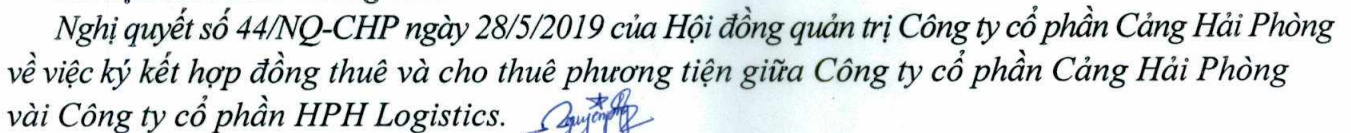 Nghị quyết số 44/NQ-CHP ngày 28/5/2019 của Hội đồng quản trị Công ty cổ phần Cảng Hải Phòng
về việc ký kết hợp đồng thuê và cho thuê phương tiện giữa Công ty cổ phần Cảng Hải Phòng
vài Công ty cổ phần HPH Logistics.